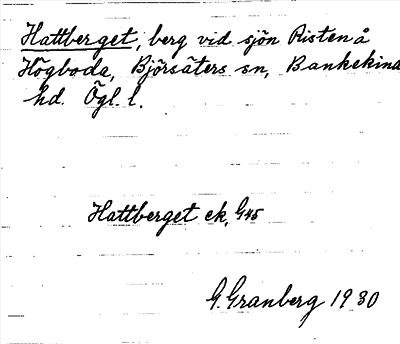 Hattberget, berg vid sjön Risten å
Högboda, Björsäters sn, Bankekind
hd. Ögl. l.
Hattberget ek. G45
G. Granberg 1930